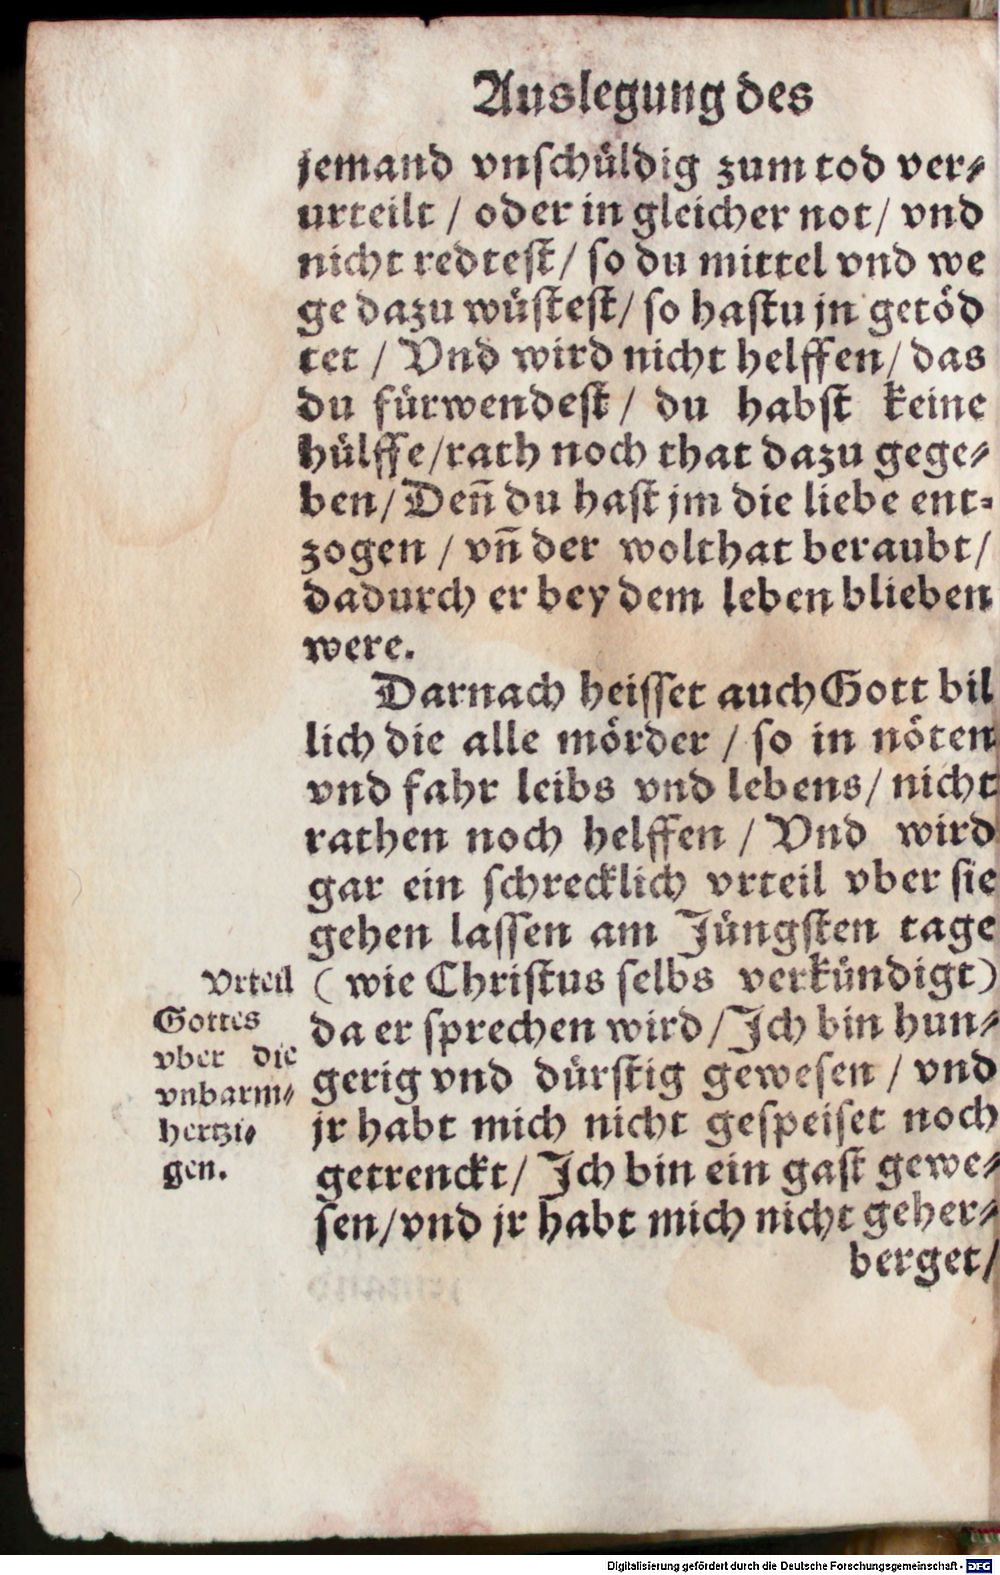 Auslegung des
jemand vnſchüldig zum tod ver⸗
urteilt / oder in gleicher not / vnd
nicht redteſt / ſo du mittel vnd we
ge dazu wüſteſt / ſo haſtu jn getöd
tet / Vnd wird nicht helffen / das
du fürwendeſt / du habſt keine
hülffe / rath noch that dazu gege⸗
ben / Deñ du haſt jm die liebe ent⸗
zogen / vñ der wolthat beraubt /
dadurch er bey dem leben blieben
were.
Darnach heiſſet auch Gott bil
lich die alle mörder / ſo in nöten
vnd fahr leibs vnd lebens / nicht
rathen noch helffen / Vnd wird
gar ein ſchrecklich vrteil vber ſie
gehen laſſen am Jüngſten tage
( wie Chriſtus ſelbs verkündigt )
da er ſprechen wird / Ich bin hun⸗
gerig vnd dürſtig geweſen / vnd
jr habt mich nicht geſpeiſet noch
getrenckt / Ich bin ein gaſt gewe⸗
ſen / vnd jr habt mich nicht geher⸗
berget /
Vrteil
Gottes
vber die
vnbarm⸗
hertzi⸗
gen.
Digitalisierung gefördert durch die Deutsche Forschungsgemeinschaft - DFG